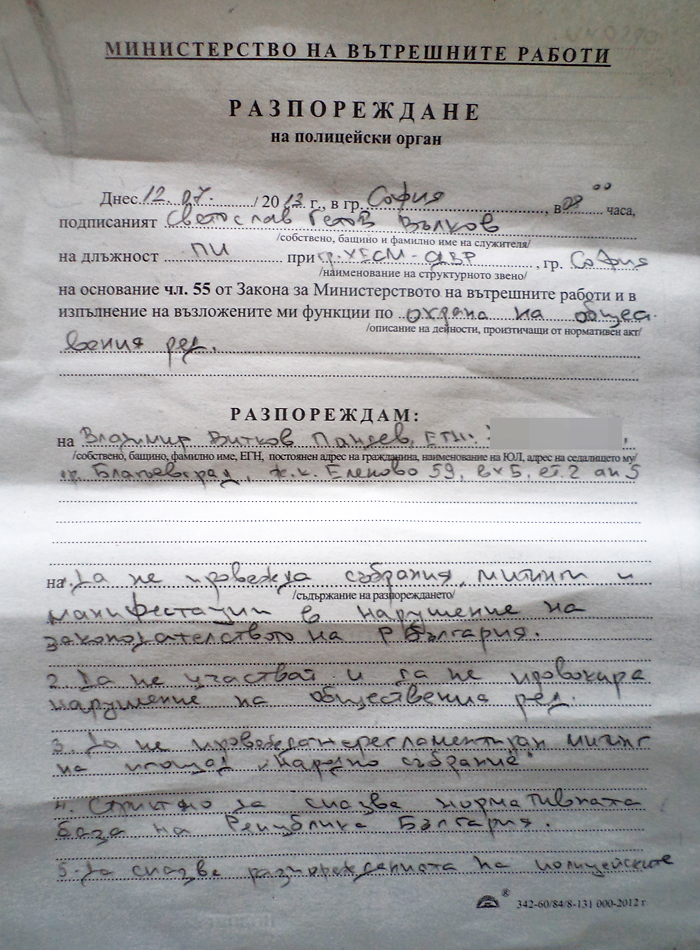 МИНИСТЕРСТВО НА ВЪТРЕШНИТЕ РАБОТИ
РАЗПОРЕЖДАНЕ
на полицейски орган
Днес 12.07. / 2013 г., в гр. София, в 08 00 часа,
подписаният Светослав Вълков
/собствено, бащино и фамилно име на служителя/
на длъжност ПИ при гр. , гр. София
/наименование на структурното звено/
на основание чл. 55 от Закона за Министерството на вътрешните работи и в
изпълнение на възложените ми функции по охрана на общес-
/описание на дейности, произтичащи от нормативен акт/
вения ред.
РАЗПОРЕЖДАМ:
на Владимир Витков Панчев, ЕГН:
/собствено, бащино, фамилно име, ЕГН, постоянен адрес на гражданина, наименование на ЮЛ, адрес на седалището му/
гр. Благоевград, ж.к. Еленово 59, вх Б, ет. 2 ап 5
на: Да не провежда събрания, митинги и
/съдържание на разпореждането/
манифестации в нарушение на
законодателството на Р България.
2. Да не участвай и да не провокира
нарушение на обществения ред.
3. Да не провежда нерегламентиран митинг
на площад "Народно събрание"
4. Стриктно да спазва нормативната
база на Република България.
5. Да спазва разпорежданията на полицейските
342-60/84/8-131 000-2012 г